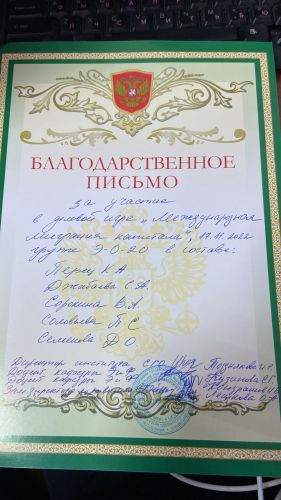 БЛАГОДАРСТВЕННОЕ
ПИСЬМО
за участие
в деловой игре „Международная
миграция капитала", 17.11.2022
группе Э-О-20 в составе:
Перец К.А
Джибаева С.А.
Сорокина В.А.
Соловьева П С
Семешова Д О.
Директор института
Доцент кафедры Э и Ф
Доцент кафедры Э и Ф
Зам. директора